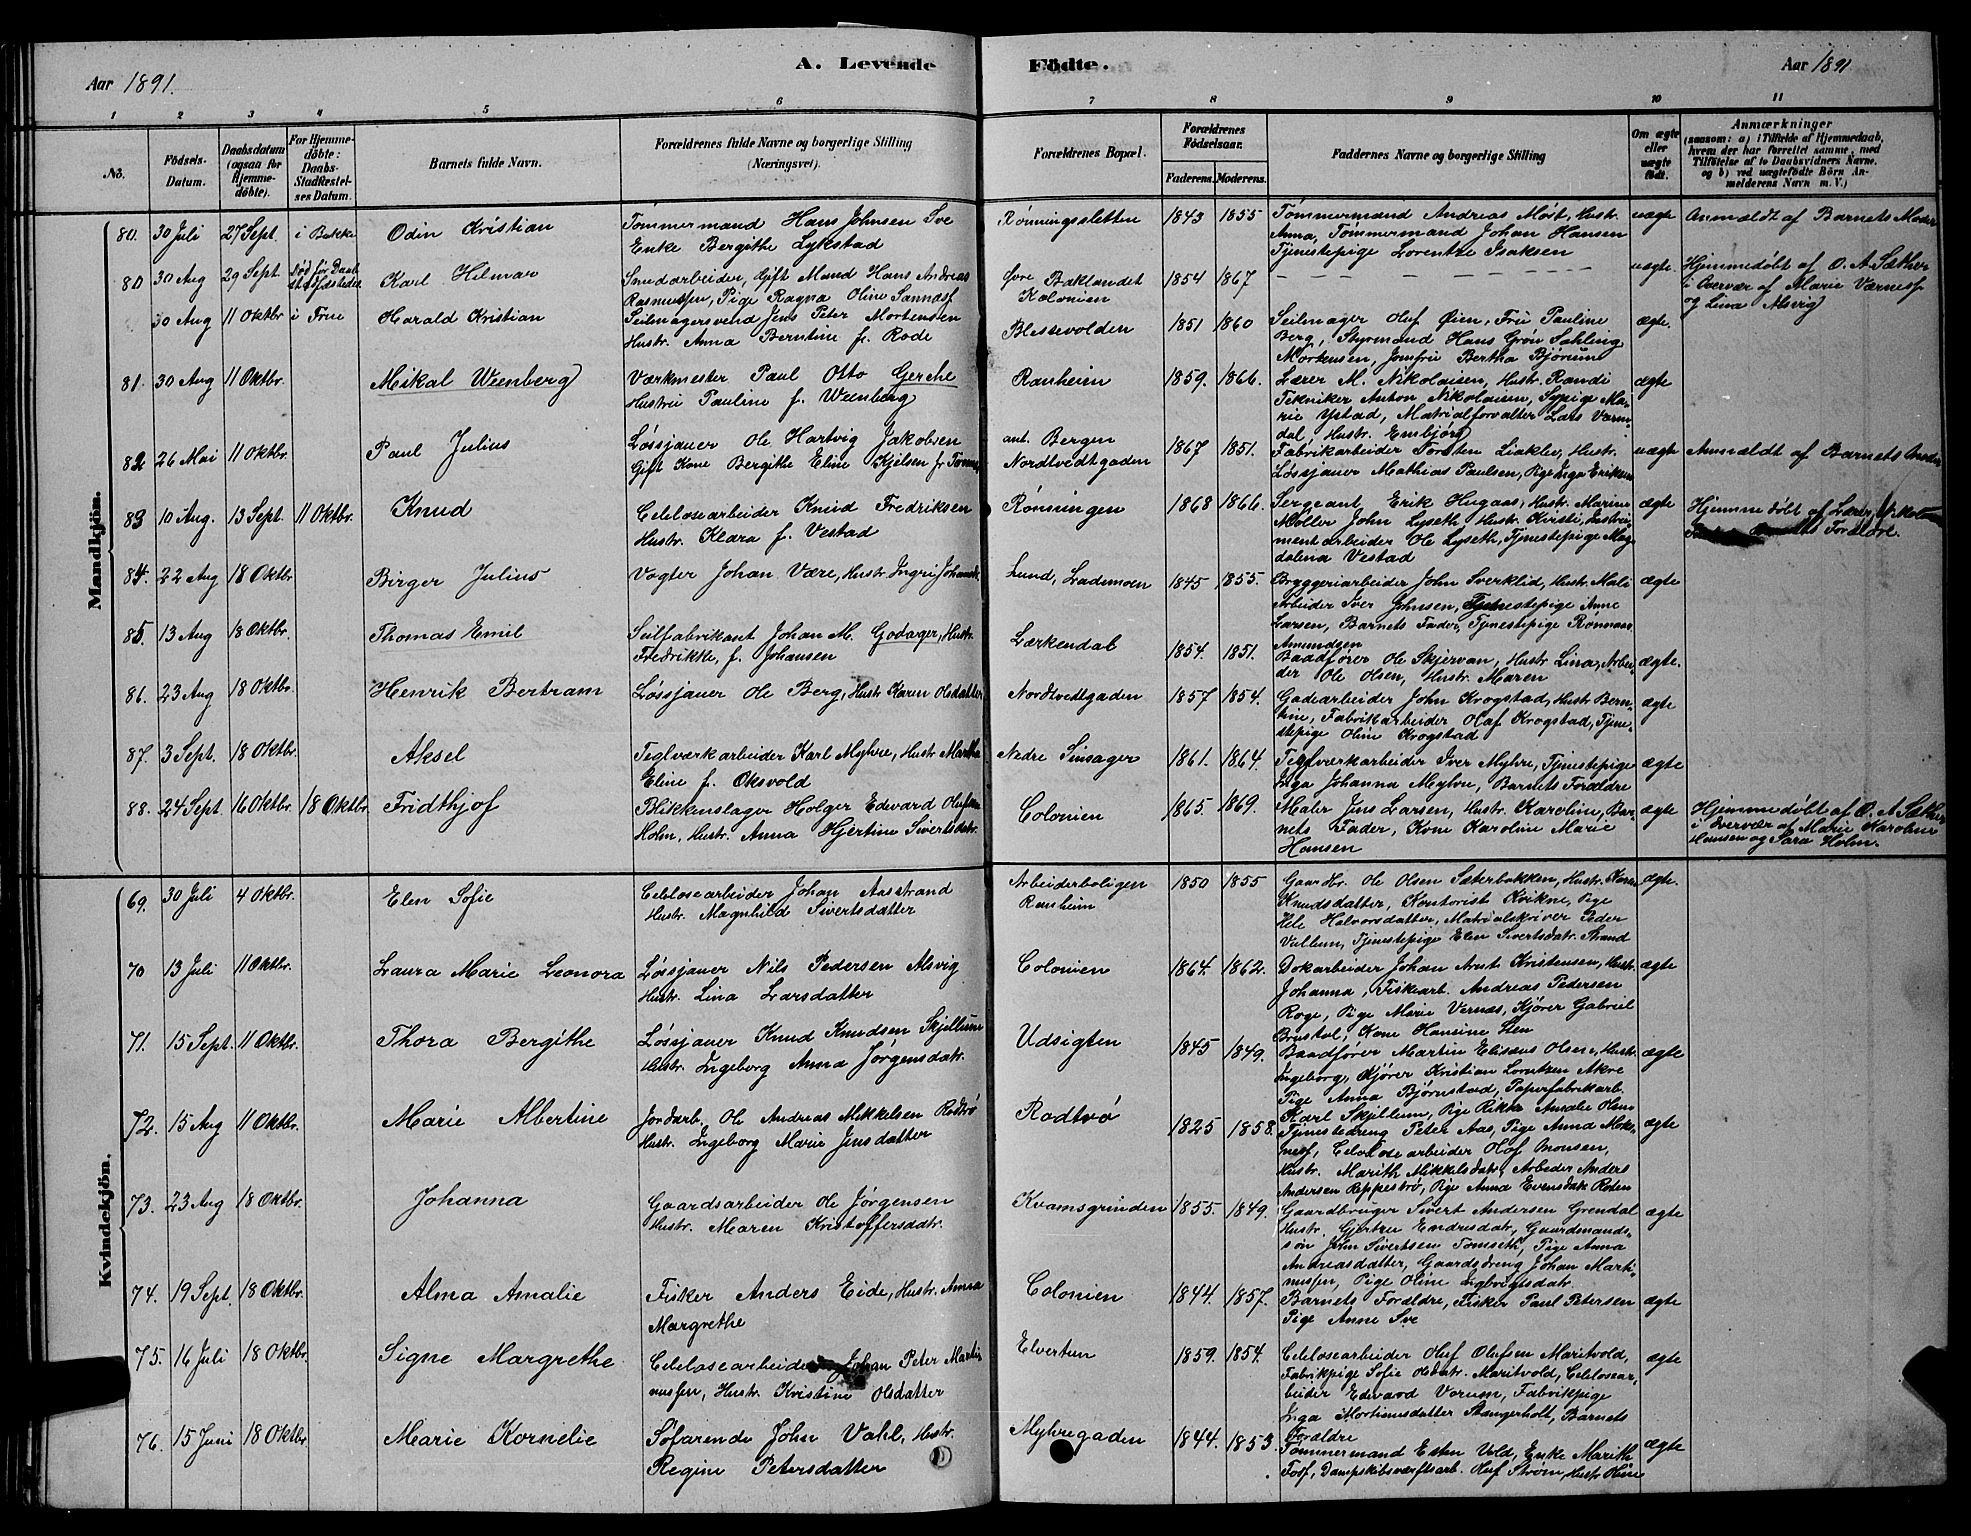 A. Levende Fødte.
Aar 1891.
Aar 1891
1 2 3 4 5 6 7 8 9 10 11
No.
Födsels-Datum.
Daabsdatum (ogsaa for Hjemme-döbte).
For Hjemme-döbte: Daabs-Stadfæstel-ses Datum.
Barnets fulde Navn.
Forældrenes fulde Navne og borgerlige Stilling (Næringsvei).
Forældrenes Bopæl.
Forældrenes Födselsaar.
Faderens. Moderens.
Faddernes Navne og borgerlige Stilling
Om ægte eller uægte født.
Anmærkninger
(saasom: a) i Tilfælde af Hjemmedaab, hvem der har forrettet samme, med Tilföielse af to Daabsvidners Navne. og b) ved uægtefödte Börn An-melderens Navn m. V.)
Mandkjön.
80. 30 Juli 27 Sept. i Bakke Odin Kristian
Tømmermand Hans Johnsen Sve
Enke Bergithe Lykstad
Rønningsletten 1843 1855
Tømmermand Andreas Møst, Hustr.
Anna, Tømmermand Johan Hansen
Tjenestepige Lorentze Isaksen
uægte Anmældt af Barnets Moder
80 30 Aug 29 Sept. Karl Hilmar
Smedarbeider, Gift Mand Hans Andreas
Rasmussen, Pige Ragna Oline Sannæss
Øvre Baklandet
Kolonien 1854 1867
uægte. Hjemmedøbt af O. A. Sæther
i Overvær af Marie Værness
og Lina Alsvig
30 Aug 11 Oktbr i Frue Harald Kristian
Seilmagersvend Jens Peter Mortensen
Hustr. Anna Berntine f. Rode
Blessevolden 1851 1860
Seilmager Oluf Øien, Fru Pauline
Berg, Styrmand Hans Grøn Sahling
Mortensen, Jomfru Bertha Bjørum
ægte.
81. 30 Aug 11 Oktbr. Mikal Weenberg
Værkmester Paul Otto Gerche
Hustru Pauline f. Weenberg
Ranheim 1859. 1866.
Lærer M. Nikolaisen, Hustr. Randi
Tekniker Anton Nikolaisen, Sypige Ma-
rie Ystad, Matrialforvalter Lars Værn-
dal, Hustr. Embjørg
ægte
82 26 Mai 11 Oktbr. Paul Julius
Løssjauer Ole Hartvig Jakobsen
Gift Kone Bergithe Eline Kjelsen f.
ant. Bergen
Nordtvedtgaden 1867 1851.
Fabrikarbeider Torsten Liaklev, Hustr.
Løssjauer Mathias Paulsen, Pige Inga Eriksen
uægte Anmældt af Barnets Moder
83 10 Aug. 13 Sept. 11 Oktbr. Knud
Celulosearbeider Knud Fredriksen
Hustr. Klara f. Vestad
Rønningen 1868 1866.
Sergeant Erik Hugaas, Hustr. Marine
Møller John Lyseth Hustr. Kirsti, Instru-
mentarbeider Ole Lyseth, Tjenestepige Mag-
dalena Vestad
ægte Hjemmedøbt af Lærer
Forældre.
84. 22 Aug 18 Oktbr. Birger Julius
Vogter Johan Være, Hustr. Ingri
Lund, Lademoen 1845 1855.
Bryggeriarbeider John Sverklid, Hustr. Mali
Arbeider Iver Johnsen, Tjenestepige Anne
Larsen, Barnets Fader, Tjenestepige
Amundsen
ægte
85. 13 Aug 18 Oktbr. Thomas Emil
Seilfabrikant Johan M. Godager, Hustr.
Fredrikke, f. Johansen
Lærkendal 1854. 1851.
Baadfører Ole Skjervan, Hustr Lina, Arbei-
der Ole Olsen, Hustr. Maren
ægte.
86. 23 Aug 18 Oktbr. Henrik Bertram
Løssjauer Ole Berg, Hustr Karen Olsdatter
Nordtvedtgaden 1857 1854.
Gadearbeider John Krogstad, Hustr. Bern-
tine, Fabrikarbeider Olaf Krogstad, Tjene-
stepige Oline Krogstad
ægte
87. 3 Sept. 18 Oktbr. Aksel
Teglverkarbeider Karl Myhre, Hustr Martha
Eline f. Oksvold
Nedre Sinsager 1861. 1864.
Teglværkarbeider Iver Myhre, Tjenestepige
Inga Johanna Myhre, Barnets Forældre
ægte
88. 24 Sept 16 Oktbr. 18 Oktbr. Fridthjof
Blikkenslager Holger Edvard Olufsen
Holm, Hustr. Anna Hjertine Sivertsdatr.
Colonien 1865 1869.
Maler Jens Larsen, Hustr Karoline, Bar-
nets Fader, Kone Karoline Marie
Hansen
ægte Hjemmedøbt af O. A. Sæther
i Overvær af Marie Karoline
Hansen og Sara Holm.
Kvindekjön.
69. 30 Juli 4 Oktbr. Elen Sofie
Celulosearbeider Johan Aasstrand
Hustr. Magnhild Sivertsdatter
Arbeiderboligen
Ranheim 1850 1855
Gaardbr. Ole Olsen Sæterbakken, Hustr. Karen
Knudsdatter, Kontorist Kvikne, Pige
Hele Halvorsdatter, Matrialskriver Peder
Vullum, Tjenestepige Elen Sivertsdatr. Strand
ægte.
70 13 Juli 11 Oktbr. Laura Marie Leonora
Løssjauer Nils Pedersen Alsvig
Hustr. Lina Larsdatter
Colonien 1864. 1862.
Dokarbeider Johan Arnt Kristensen, Hustr.
Johanna, Fiskearb. Andreas Pedersen
Roge, Pige Marie Vernes, Kjører Gabriel
Brustol, Kone Hansine Sten
ægte
71. 15 Sept. 11 Oktbr. Thora Bergithe
Løssjauer Knud Knudsen Skjellum
Hustr. Ingeborg Anna Jørgensdatr.
Udsigten 1845 1849.
Baadfører Martin Elisæus Olsen, Hustr.
Ingeborg, Kjører Kristian Lorntzen Akre
Pige Anna Bjørnstad, Paperfabrikarb.
Karl Skjellum, Pige Rikka Amalie Olsen
ægte
72. 15 Aug 11 Oktbr. Marie Albertine
Jordarb. Ole Andreas Mikkelsen Rodtrø
Hustr. Ingeborg Marie Jensdatter
Rodtrø 1825 1858.
Tjenestedreng Peter Aas, Pige Anna Mok-
ness, Celulosearbeider Olaf Monsen,
Hustr. Marith Mikkelsdatr, Arbeider Anders
Andersen Reppestrø, Pige Anna Evensdatr Roten
ægte
73. 23 Aug 18 Oktbr. Johanna
Gaardsarbeider Ole Jørgensen
Hustr. Maren Kristoffersdatr.
Kvamsgrinden 1855. 1849.
Gaardbruger Sivert Andersen Grendal
Hustr. Gjertru Endresdatr, Gaardmands-
søn John Sivertsen Tomseth, Pige Anna
Andreasdatter, Gaardsdreng Johan Marti-
nussen, Pige Oline Ingbrigtsdatr.
ægte
74. 19 Sept. 18 Oktbr. Alma Amalie
Fisker Anders Eide, Hustr. Anna
Margrethe
Colonien 1844. 1857.
Barnets Forældre, Fisker Paul Petersen
Pige Anne Sve
ægte
75. 16 Juli 18 Oktbr. Signe Margrethe
Celulosearbeider Johan Peter Marti-
nussen, Hustr. Kristine Olsdatter
Elvertun 1859. 1854.
Celulosearbeider Oluf Olufsen Maritvold,
Fabrikpige Sofie Olsdatr. Maritvold, Celulosear-
beider Edvard Vorum, Fabrikpige
Inga Mortinusdatter Stangerholt, Barnets
Forældre
ægte
76. 15 Juni 18 Oktbr. Marie Kornelie
Søfarende John Vahl, Hustr.
Regine Petersdatter
Myhregaden 1844. 1853.
Tømmermand Esten Vold, Enke Marith
Foss, Dampskibsværftsarb. Oluf Strøm, Hustr Oline
ægte